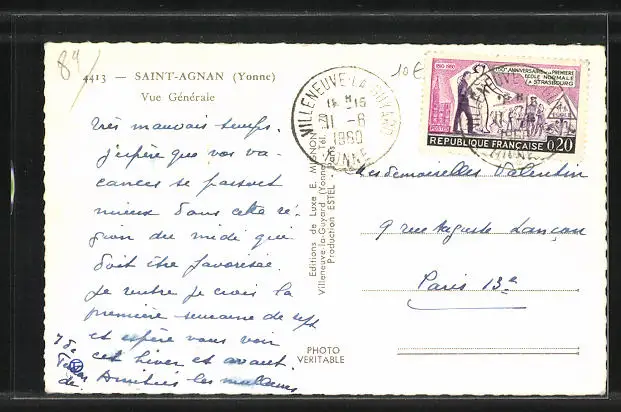 89
4413 — SAINT-AGNAN (Yonne)
Vue Générale
Très mauvais temps.
J'espère que vos va-
cances se passent
mieux dans cette ré-
gion du midi qui
doit être favorisée.
Je rentre je crois la
première semaine de sept
et espère vous voir
cet hiver et avant.
Amitiés les meilleures
Editions de Luxe E. MIGNON
Villeneuve-la-Guyard (Yonne) Tél. 20
Production ESTEL Paris
PHOTO
VERITABLE
10€
VILLENEUVE-LA-GUYARD
16 H 15
11 -8
1960
YONNE
150e ANNIVERSAIRE DE LA PREMIERE
ECOLE NORMALE
STRASBOURG
REPUBLIQUE FRANÇAISE 0,20
Mesdemoiselles Valentin
9 rue Auguste Lançon
Paris 13e